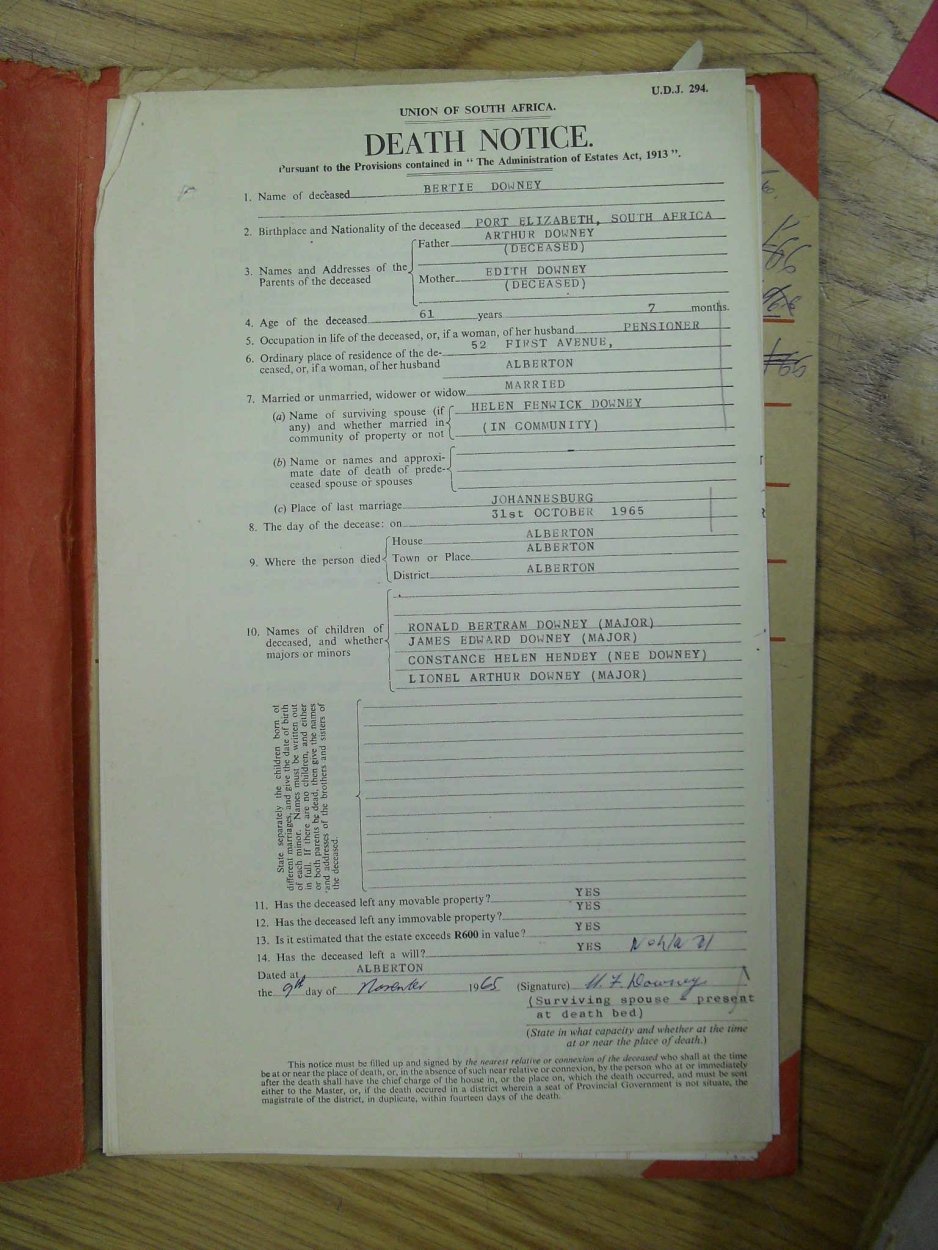 U.D.J. 294.
UNION OF SOUTH AFRICA.
DEATH NOTICE.
Pursuant to the Provisions contained in “ The Administration of Estates Act, 1913 ”.
1. Name of deceased BERTIE DOWNEY
2. Birthplace and Nationality of the deceased PORT ELIZABETH, SOUTH AFRICA
3. Names and Addresses of the Parents of the deceased
Father ARTHUR DOWNEY
(DECEASED)
Mother EDITH DOWNEY
(DECEASED)
4. Age of the deceased 61 years 7 months.
5. Occupation in life of the deceased, or, if a woman, of her husband PENSIONER
6. Ordinary place of residence of the de-
ceased, or, if a woman, of her husband
52 FIRST AVENUE,
ALBERTON
7. Married or unmarried, widower or widow MARRIED
(a) Name of surviving spouse (if
any) and whether married in
community of property or not
HELEN FENWICK DOWNEY
(IN COMMUNITY)
(b) Name or names and approxi-
mate date of death of prede-
ceased spouse or spouses
(c) Place of last marriage JOHANNESBURG
8. The day of the decease: on 31st OCTOBER 1965
9. Where the person died
House ALBERTON
Town or Place ALBERTON
District ALBERTON
10. Names of children of
deceased, and whether
majors or minors
RONALD BERTRAM DOWNEY (MAJOR)
JAMES EDWARD DOWNEY (MAJOR)
CONSTANCE HELEN HENDEY (NEE DOWNEY)
LIONEL ARTHUR DOWNEY (MAJOR)
State separately the children born of
different marriages, and give the date of birth
of each minor. Names must be written out
in full. If there are no children, and either
or both parents be dead, then give the names
and addresses of the brothers and sisters of
the deceased.
11. Has the deceased left any movable property? YES
12. Has the deceased left any immovable property? YES
13. Is it estimated that the estate exceeds R600 in value? YES
14. Has the deceased left a will? YES
Dated at ALBERTON
the 9th day of November 1965 (Signature) H. F. Downey
(Surviving spouse - present
at death bed)
(State in what capacity and whether at the time
at or near the place of death.)
This notice must be filled up and signed by the nearest relative or connexion of the deceased who shall at the time
be at or near the place of death, or, in the absence of such near relative or connexion, by the person who at or immediately
after the death shall have the chief charge of the house in, or the place on, which the death occurred, and must be sent
either to the Master, or, if the death occured in a district wherein a seat of Provincial Government is not situate, the
magistrate of the district, in duplicate, within fourteen days of the death.